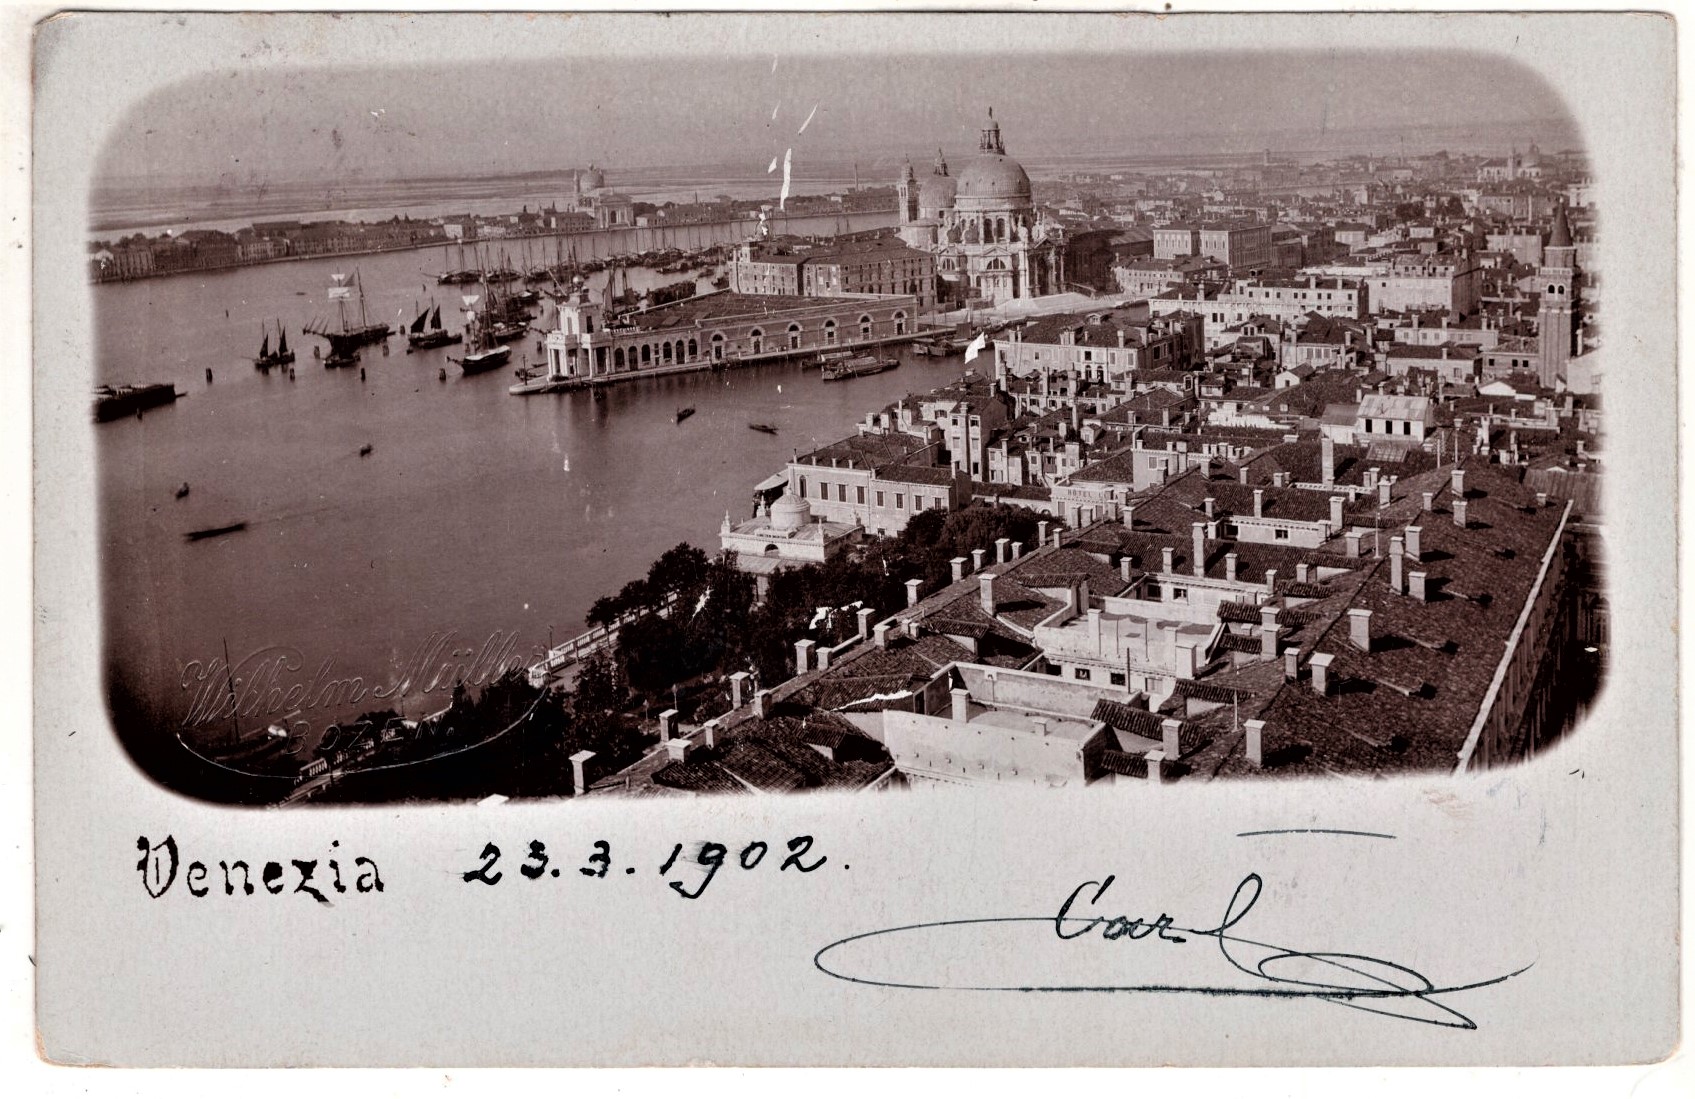 HOTEL
Wilhelm Müller
BOZEN.
Venezia 23.3.1902.
Carl